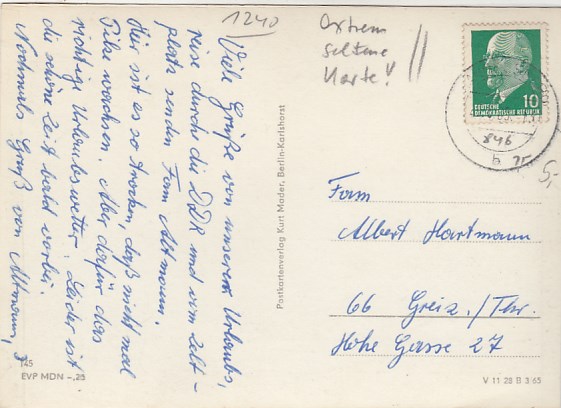 1240
extrem
seltene
Karte!
Viele Grüße von unserer Urlaubs-
reise durch die DDR und vom Zelt-
platz senden Fam. Altmann.
Hier ist es so trocken, daß nicht mal
Pilze wachsen. Aber dafür das
richtige Urlaubswetter. Leider ist
die schöne Zeit bald vorbei.
Nochmals Gruß von Altmann,
Postkartenverlag Kurt Mader, Berlin-Karlshorst
10
DEUTSCHE
DEMOKRATISCHE REPUBLIK
846
b
5,-
Fam
Albert Hartmann
66 Greiz./Thr.
Hohe Gasse 27
145
EVP MDN -,25
V 11 28 B 3 65